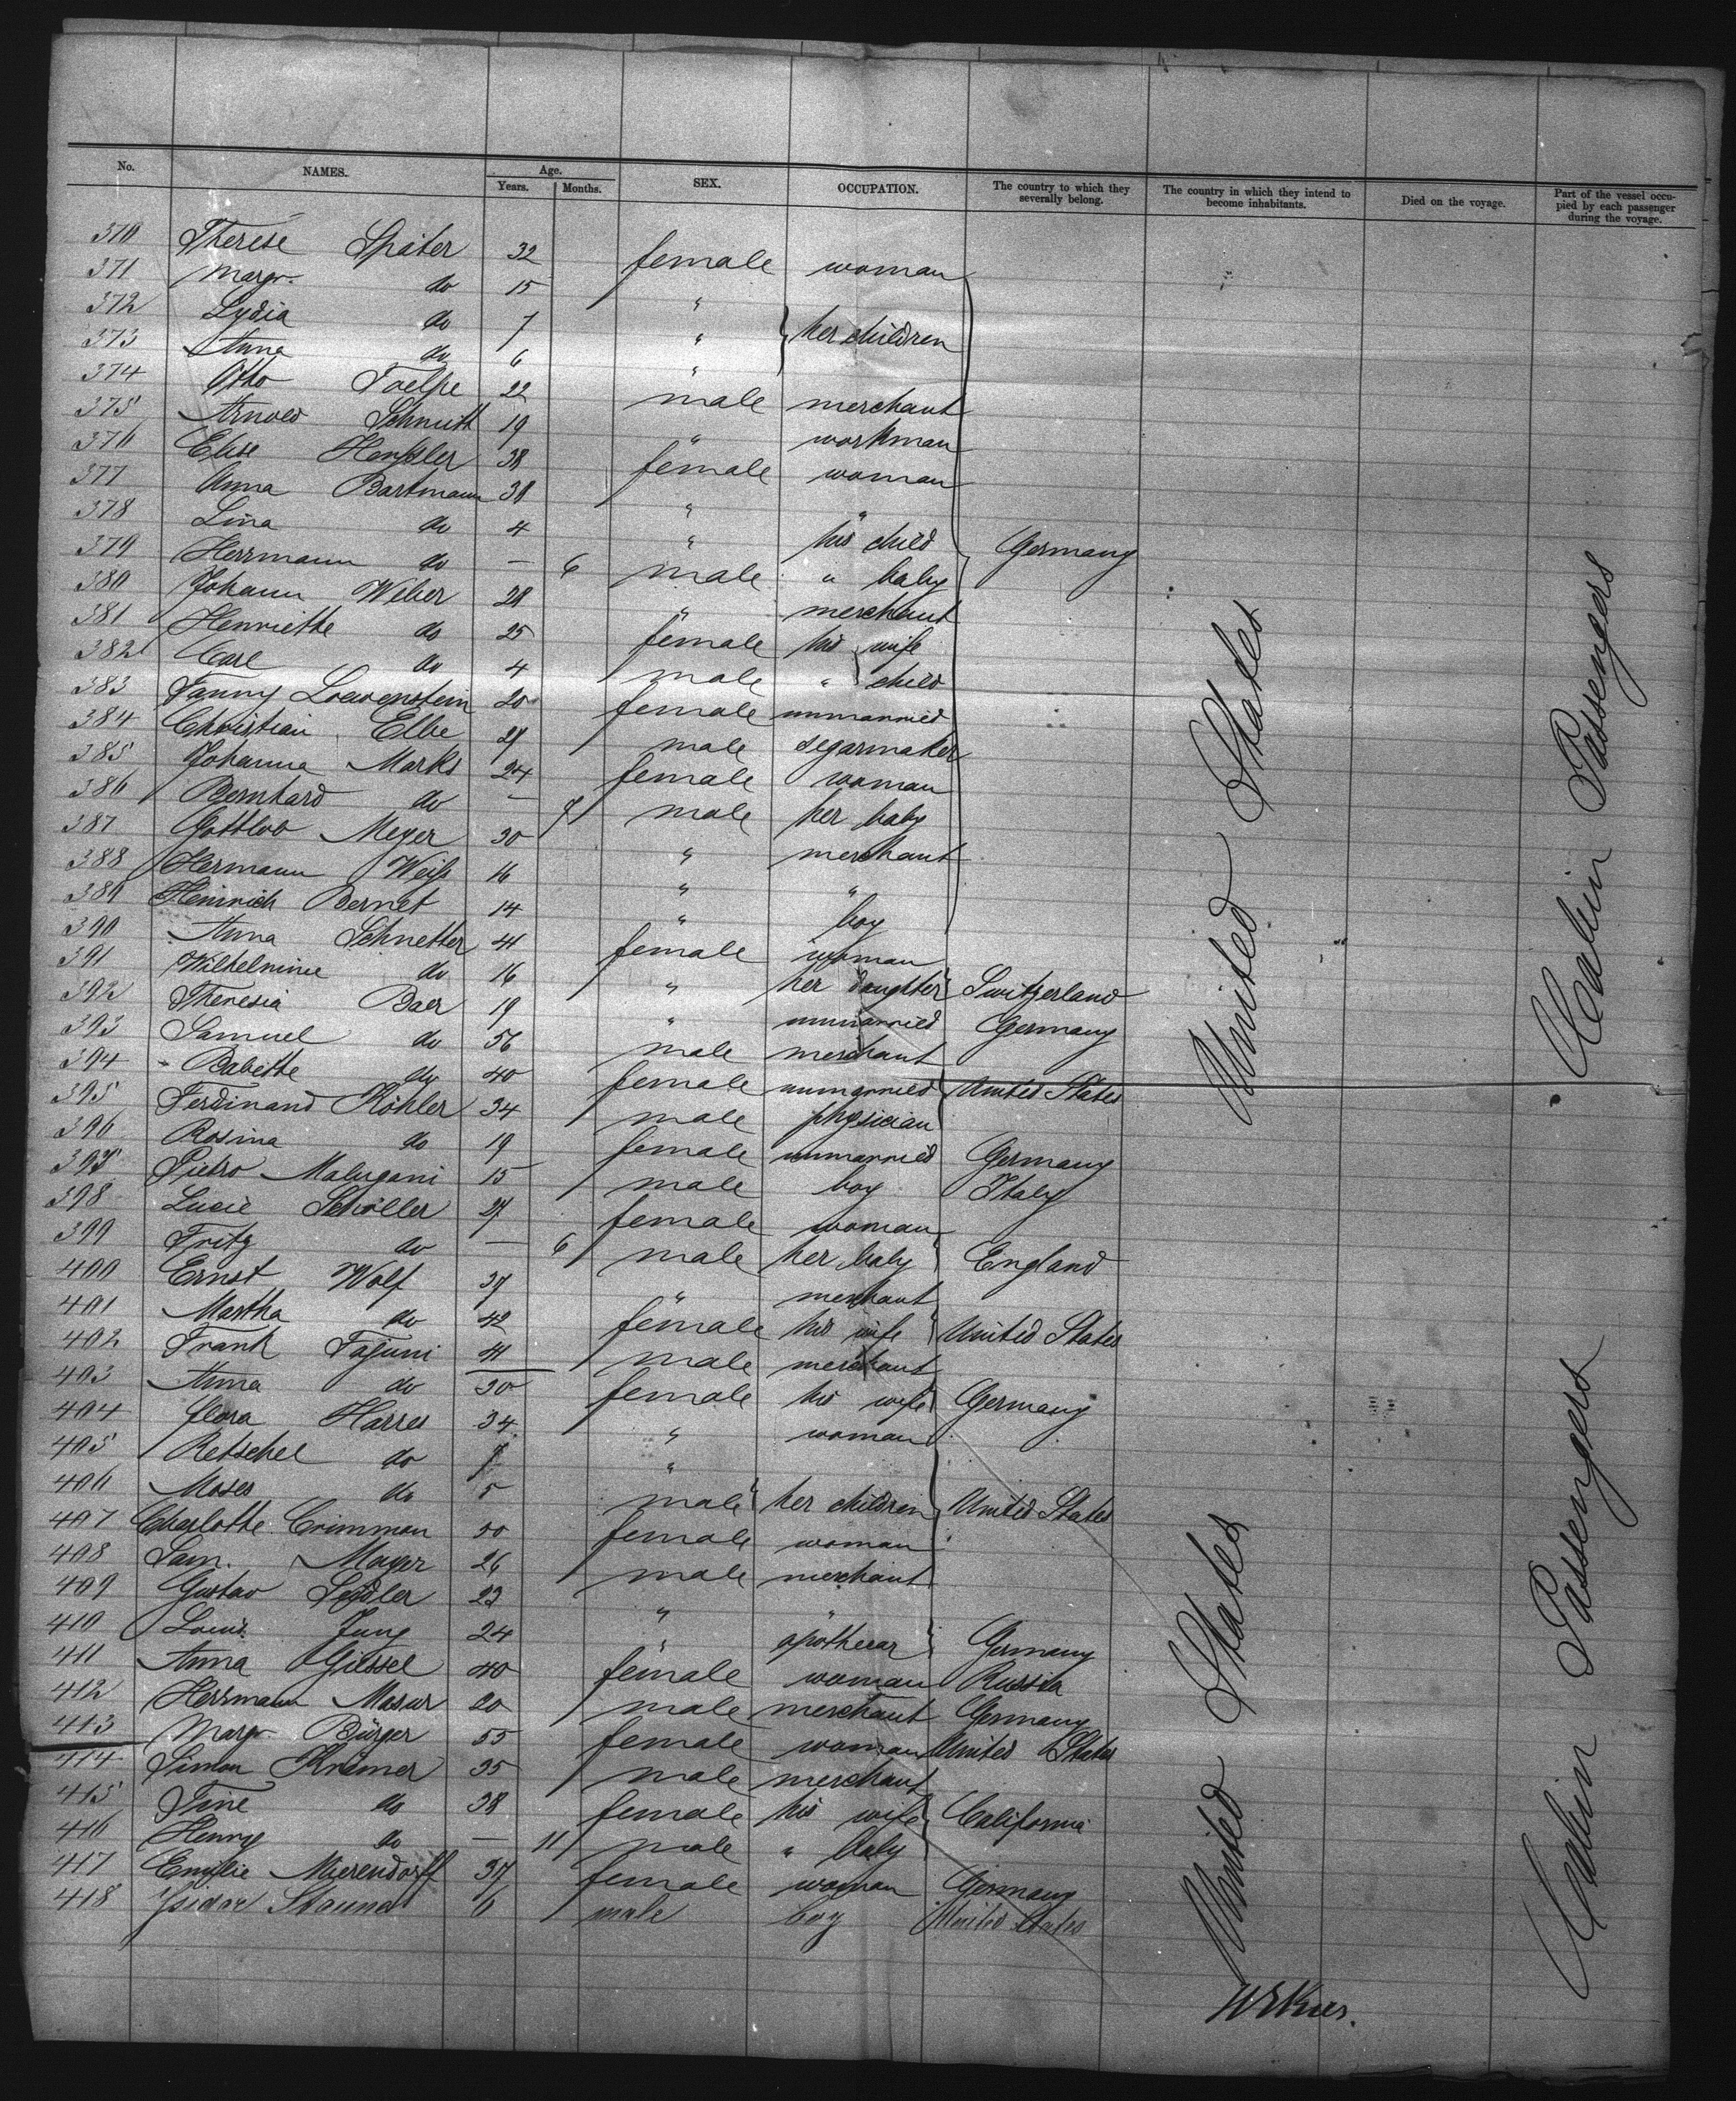 No. NAMES. Age. Years. Months. SEX. OCCUPATION. The country to which they severally belong. The country in which they intend to become inhabitants. Died on the voyage. Part of the vessel occupied by each passenger during the voyage.
370 Therese Später 32 female woman
371 Margr. do 15 "
372 Lydia do 7 " her children
373 Anna do 6 "
374 Otto Toelpe 22 male merchant
375 Arnold Schmitt 19 " workman
376 Elise Henssler 38 female woman
377 Anna Bartmann 38 " "
378 Lina do 4 " his child Germany
379 Herrmann do — 6 male " baby
380 Johann Weber 28 " merchant
381 Henriette do 25 female his wife
382 Carl do 4 male " child
383 Fanny Loewenstein 20 female unmarried
384 Christian Elbe 27 male segarmaker
385 Johanna Marks 24 female woman
386 Bernhard do — male her baby
387 Gottlob Meyer 30 " merchant
388 Hermann Weiß 16 " "
389 Heinrich Bernet 14 " boy
390 Anna Schnetter 41 female woman
391 Wilhelmine do 16 " her daughter Switzerland
392 Theresia Baer 19 " unmarried Germany
393 Samuel do 56 male merchant
394 Babette do 40 female unmarried United States
395 Ferdinand Köhler 34 male physician
396 Rosina do 19 female unmarried Germany
397 Pietro Malugani 15 male boy Italy
398 Lucie Schöller 27 female woman
399 Fritz do — 6 male her baby England
400 Ernst Wolf 37 " merchant
401 Martha do 42 female his wife United States
402 Frank Fajuni 41 male merchant
403 Anna do 30 female his wife Germany
404 Flora Harres 34 " woman
405 Retschel do 7 "
406 Moses do 5 male her children United States
407 Charlotte Crimmon 50 female woman
408 Sam. Mayer 26 male merchant
409 Gustav Seydler 23 " "
410 Louis Jung 24 " apothecar Germany
411 Anna Giessel 40 female woman Russia
412 Herrmann Masur 20 male merchant Germany
413 Margr. Bürger 55 female woman United States
414 Simon Krämer 35 male merchant
415 Tine do 28 female his wife California
416 Henry do — 11 male " baby
417 Emilie Mierendorff 37 female woman Germany
418 Isidor 6 male boy United States
United States
United States
Cabin Passengers
Cabin Passengers